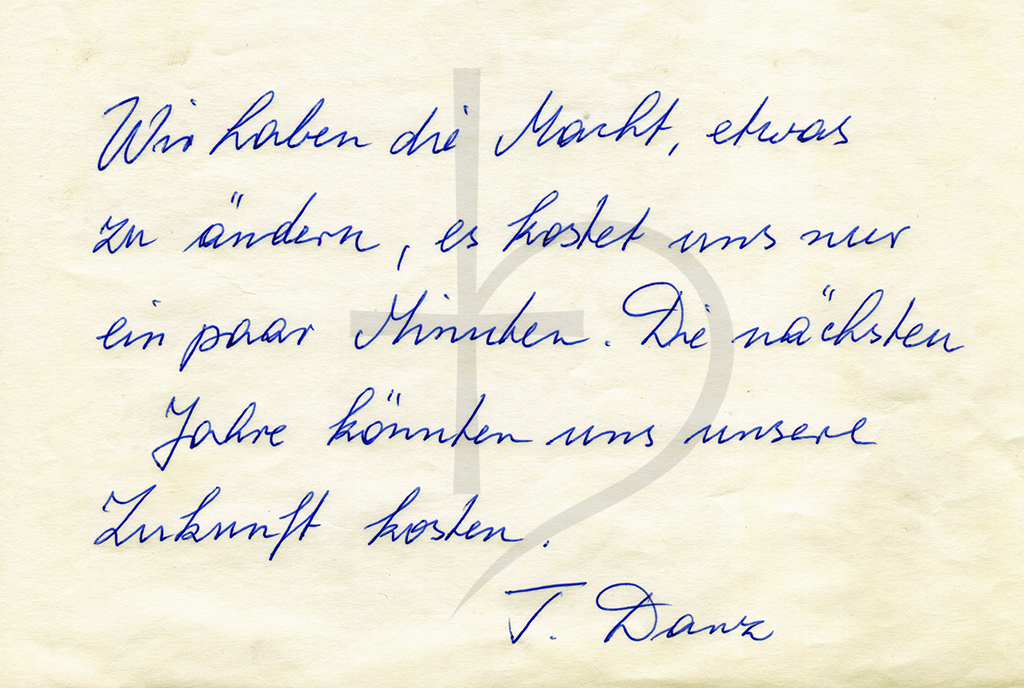 Wir haben die Macht, etwas
zu ändern, es kostet uns nur
ein paar Minuten. Die nächsten
Jahre könnten uns unsere
Zukunft kosten.
T. Danz